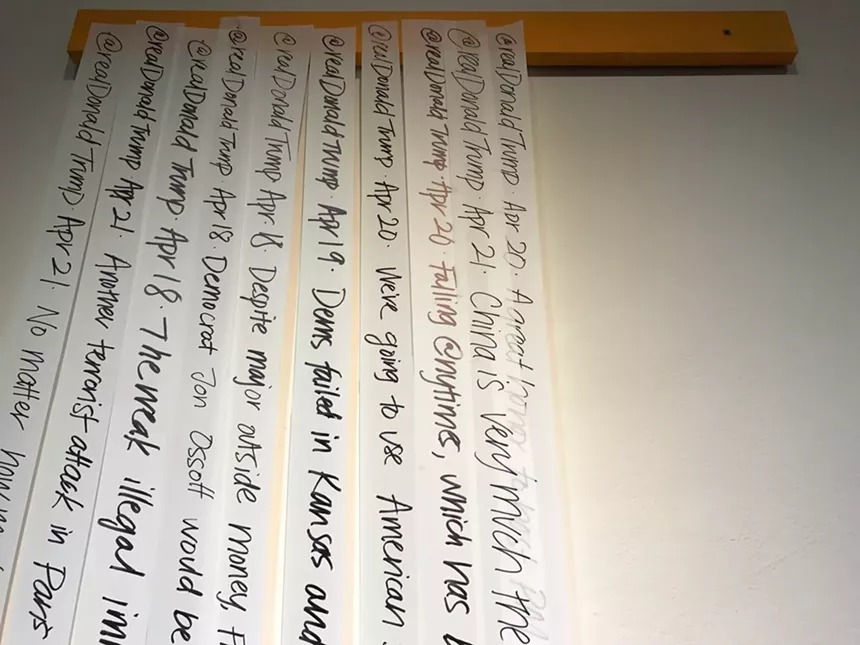 @realDonaldTrump. Apr 20. A great honor to host
@realDonaldTrump. Apr 21. China is very much the
@realDonaldTrump. Apr 20. Failing @nytimes, which has
@realDonaldTrump. Apr 20. We're going to use American
@realDonaldTrump. Apr 19. Dems failed in Kansas and
@realDonaldTrump Apr 18. Despite major outside money, F
@realDonaldTrump Apr 18. Democrat Jon Ossoff would be
@realDonaldTrump. Apr 18. The weak illegal imm
@realDonaldTrump Apr 21. Another terrorist attack in Paris
@realDonaldTrump. Apr 21. No matter how